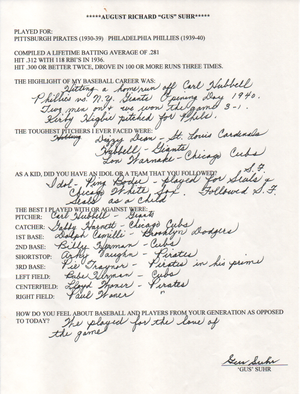 *****AUGUST RICHARD "GUS" SUHR*****
PLAYED FOR:
PITTSBURGH PIRATES (1930-39) PHILADELPHIA PHILLIES (1939-40)
COMPILED A LIFETIME BATTING AVERAGE OF .281
HIT .312 WITH 118 RBI'S IN 1936.
HIT .300 OR BETTER TWICE, DROVE IN 100 OR MORE RUNS THREE TIMES.
THE HIGHLIGHT OF MY BASEBALL CAREER WAS:
Hitting a homerun off Carl Hubbell
Phillies vs N.Y. Giants Opening Day 1940.
Two men on & we won the game 3-1.
Kirby Higbe pitched for Phils.
THE TOUGHEST PITCHERS I EVER FACED WERE:
Dizzy Dean - St. Louis Cardinals
Hubbell - Giants
Lon Warneke - Chicago Cubs
AS A KID, DID YOU HAVE AN IDOL OR A TEAM THAT YOU FOLLOWED?
Idol - Ping Bodie - played for Seals & S.F.
Chicago White Sox - Followed S.F.
Seals as a child
THE BEST I PLAYED WITH OR AGAINST WERE:
PITCHER: Carl Hubbell - Giants
CATCHER: Gabby Harnett - Chicago Cubs
1ST BASE: Dolph Camilli - Brooklyn Dodgers
2ND BASE: Billy Herman - Cubs
SHORTSTOP: Arky Vaughn - Pirates
3RD BASE: Pie Traynor - Pirates in his prime
LEFT FIELD: Babe Herman - Cubs
CENTERFIELD: Lloyd Waner - Pirates
RIGHT FIELD: Paul Waner "
HOW DO YOU FEEL ABOUT BASEBALL AND PLAYERS FROM YOUR GENERATION AS OPPOSED
TO TODAY?
We played for the love of
the game
Gus Suhr
'GUS' SUHR